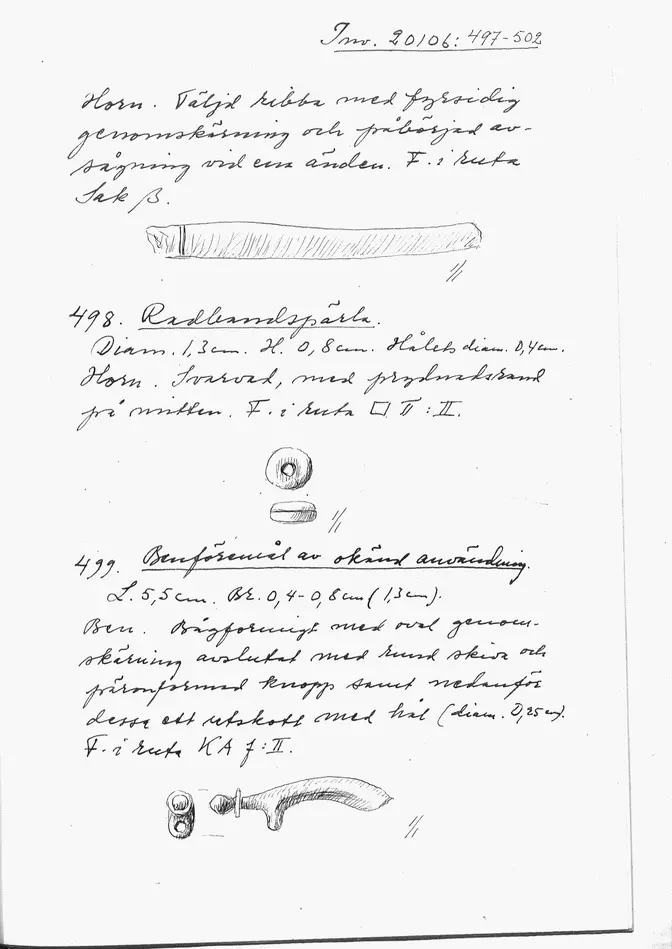 Inv. 20106: 497-502
Horn. Täljd ribba med fyrsidig
genomskärning och påbörjad av-
sågning vid ena änden. F. i ruta
Sak β.
1/1
498. Radbandspärla.
Diam. 1,3 cm. H. 0,8 cm. Hålets diam. 0,4 cm.
Horn. Svarvad, med prydnadsrand
på mitten. F. i ruta □ II : II.
1/1
499. Benföremål av okänd användning.
L. 5,5 cm. Br. 0,4-0,8 cm (1,3 cm).
Ben. Bågformigt med oval genom-
skärning avslutat med rund skiva och
päronformad knopp samt nedanför
dessa ett utskott med hål (diam. 0,25 cm).
F. i ruta KA f : II.
1/1